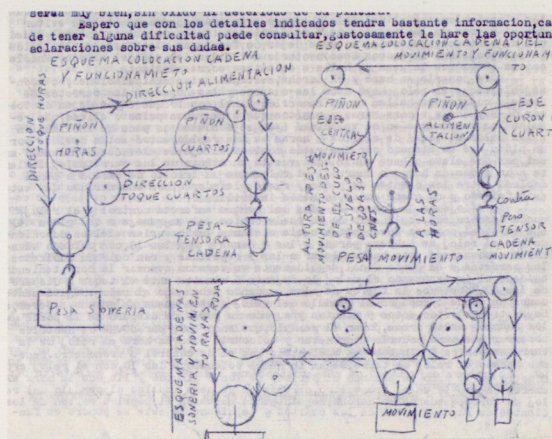 seras muy bien,sin oxido ni deterioro de su pintura.
Espero que con los detalles indicados tendra bastante informacion,ca
de tener alguna dificultad puede consultar,gustosamente le hare las oportun
aclaraciones sobre sus dudas.
ESQUEMA COLOCACION CADENA
Y FUNCIONAMIETO
DIRECCION ALIMENTACION
DIRECCION
TOQUE HORAS
PIÑON
HORAS
PIÑON
CUARTOS
DIRECCION
TOQUE CUARTOS
PESA
TENSORA
CADENA
PESA SONERIA
ESQUEMA COLOCACION CADENA DEL
MOVIMIENTO Y FUNCIONAM
TO
PIÑON
EJE
CENTRAL
MOVIMIETO
PIÑON
ALIMEN
TACION
EJE
CUARTO
ALTURA
MOVIMIENTO
A LAS
HORAS
PESA MOVIMIENTO
Contra
Peso
TENSOR
CADENA
MOVIMIENT
ESQUEMA CADENAS
SONERIA Y MOVIMIEN
TO RAYAS ROJAS
MOVIMIENTO